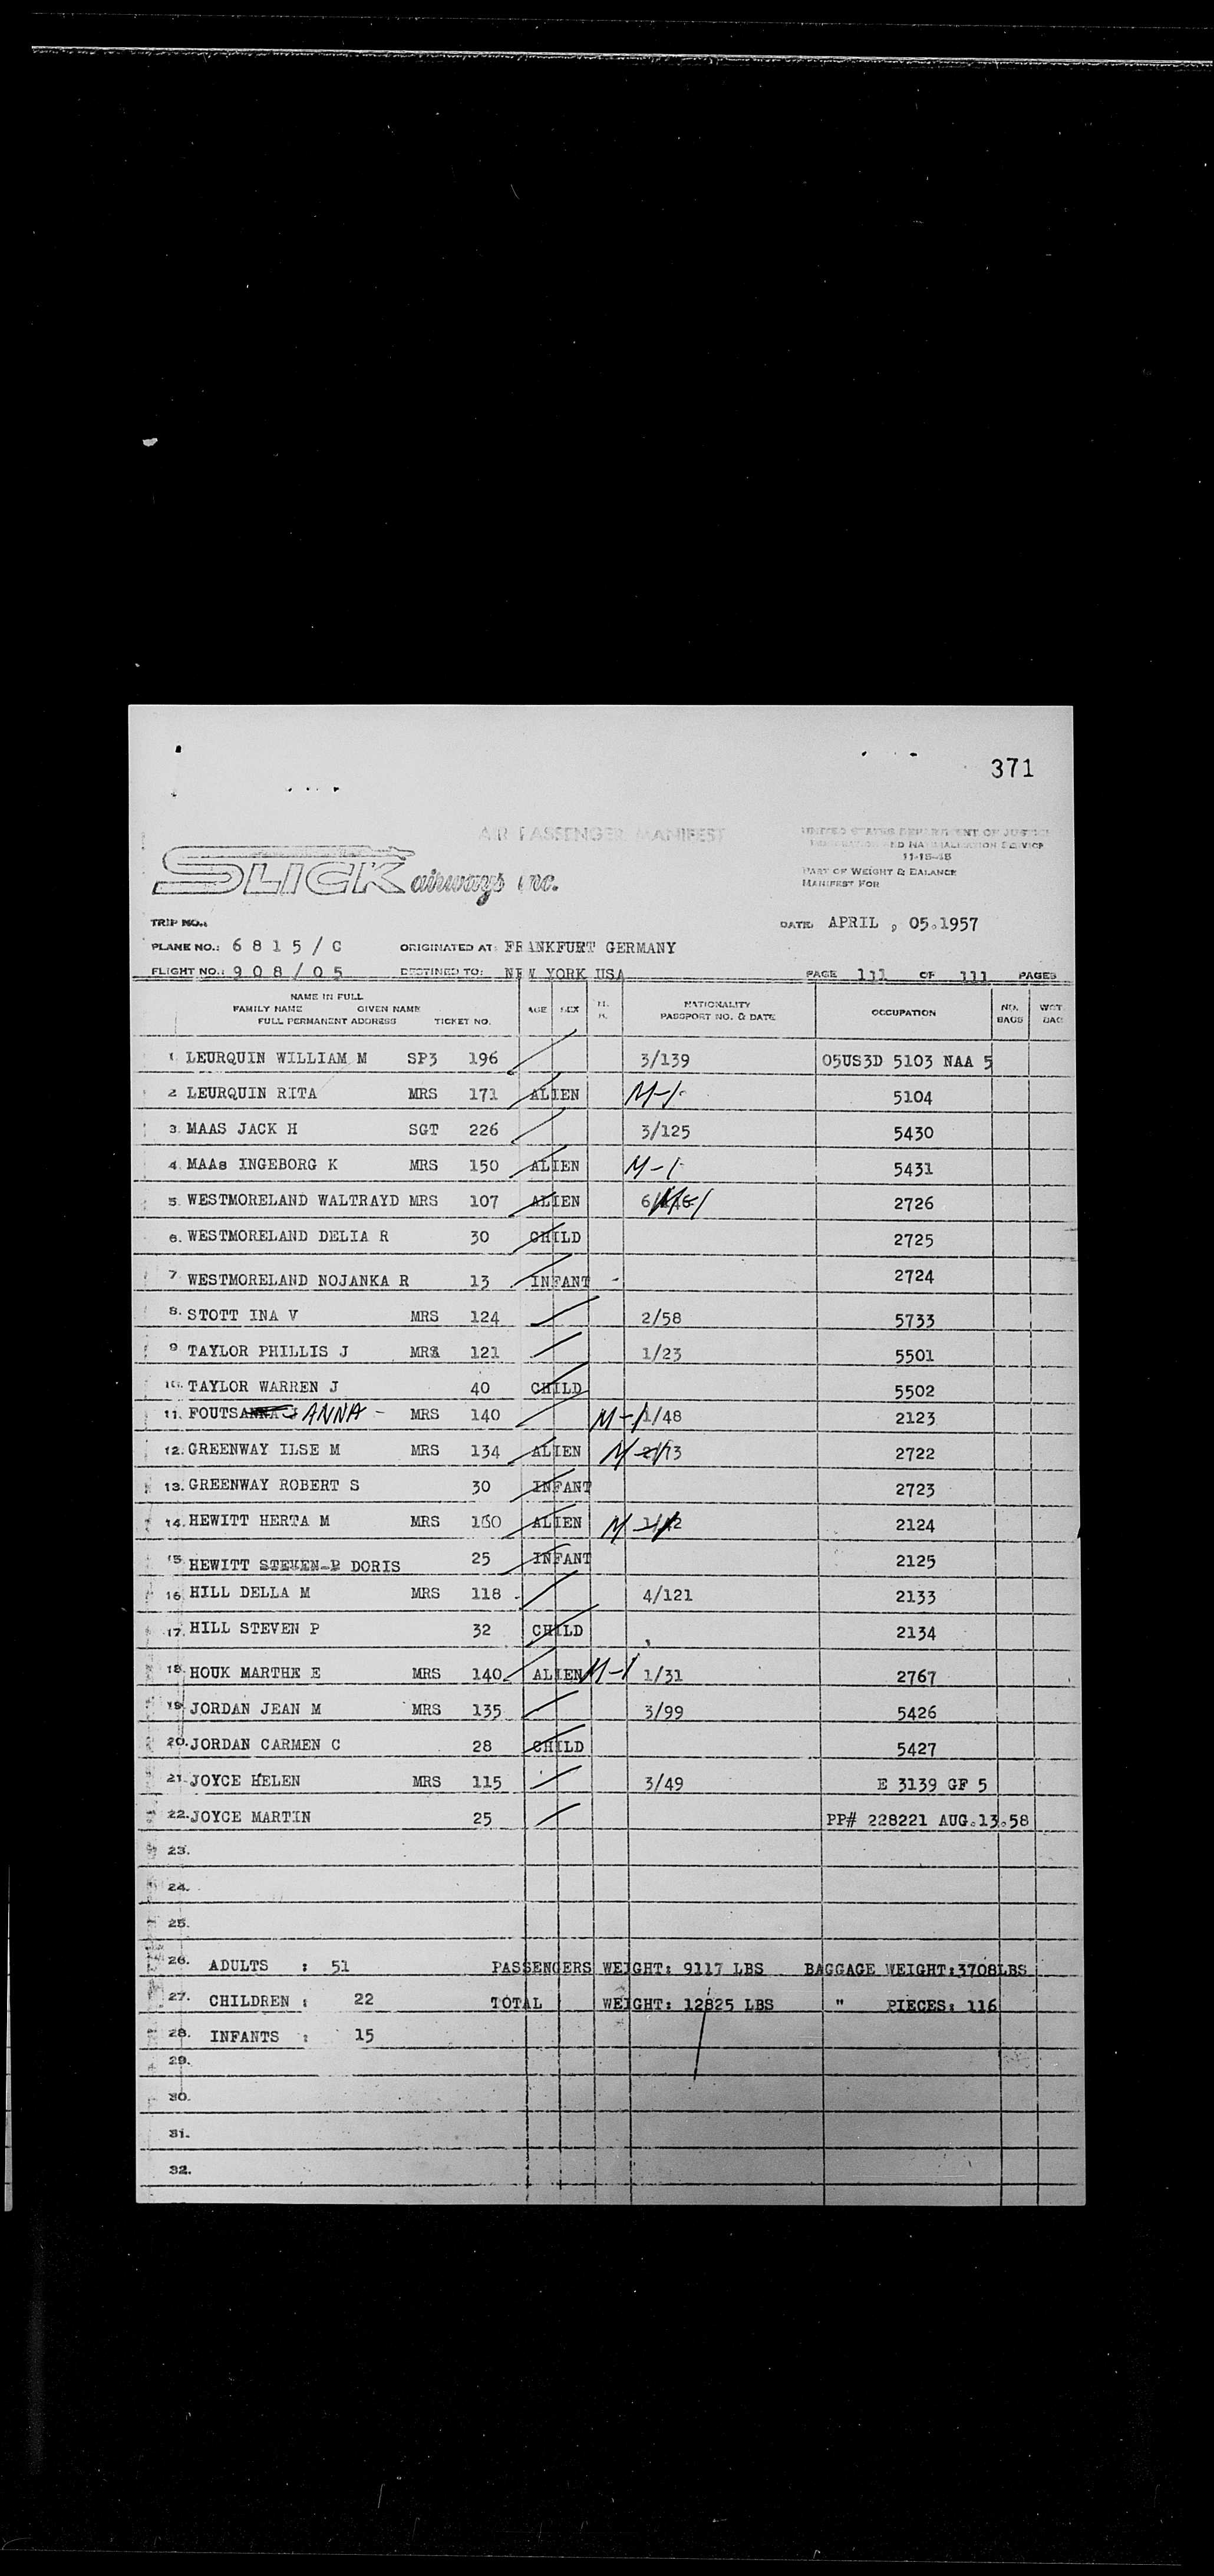 371
AIR PASSENGER MANIFEST
UNITED STATES DEPARTMENT OF JUSTICE
IMMIGRATION AND NATURALIZATION SERVICE
11-15-48
PART OF WEIGHT & BALANCE
MANIFEST FOR
SLICK airways inc.
TRIP NO.:
DATE: APRIL , 05.1957
PLANE NO.: 6 8 1 5 / C ORIGINATED AT: FRANKFURT GERMANY
FLIGHT NO.: 9 0 8 / 0 5 DESTINED TO: NEW YORK USA PAGE 111 OF 111 PAGES
NAME IN FULL
FAMILY NAME GIVEN NAME
FULL PERMANENT ADDRESS TICKET NO. AGE SEX NATIONALITY PASSPORT NO. & DATE OCCUPATION NO. BAGS WGT. BAG
1. LEURQUIN WILLIAM M SP3 196 3/139 05US3D 5103 NAA 5
2. LEURQUIN RITA MRS 171 ALIEN M-1 5104
3. MAAS JACK H SGT 226 3/125 5430
4. MAAs INGEBORG K MRS 150 ALIEN M-1 5431
5. WESTMORELAND WALTRAYD MRS 107 ALIEN M-1 2726
6. WESTMORELAND DELIA R 30 CHILD 2725
7. WESTMORELAND NOJANKA R 13 INFANT - 2724
8. STOTT INA V MRS 124 2/58 5733
9. TAYLOR PHILLIS J MRS 121 1/23 5501
10. TAYLOR WARREN J 40 CHILD 5502
11. FOUTS ANNA J ANNA - MRS 140 M-1 1/48 2123
12. GREENWAY ILSE M MRS 134 ALIEN M 2/73 2722
13. GREENWAY ROBERT S 30 INFANT 2723
14. HEWITT HERTA M MRS 160 ALIEN M 2124
15. HEWITT STEVEN P DORIS 25 INFANT 2125
16. HILL DELLA M MRS 118 4/121 2133
17. HILL STEVEN P 32 CHILD 2134
18. HOUK MARTHE E MRS 140 ALIEN M-1 1/31 2767
19. JORDAN JEAN M MRS 135 3/99 5426
20. JORDAN CARMEN C 28 CHILD 5427
21. JOYCE HELEN MRS 115 3/49 E 3139 GF 5
22. JOYCE MARTIN 25 PP# 228221 AUG.13.58
23.
24.
25.
26. ADULTS : 51 PASSENGERS WEIGHT: 9117 LBS BAGGAGE WEIGHT:3708LBS
27. CHILDREN : 22 TOTAL WEIGHT: 12825 LBS " PIECES: 116
28. INFANTS : 15
29.
30.
31.
32.